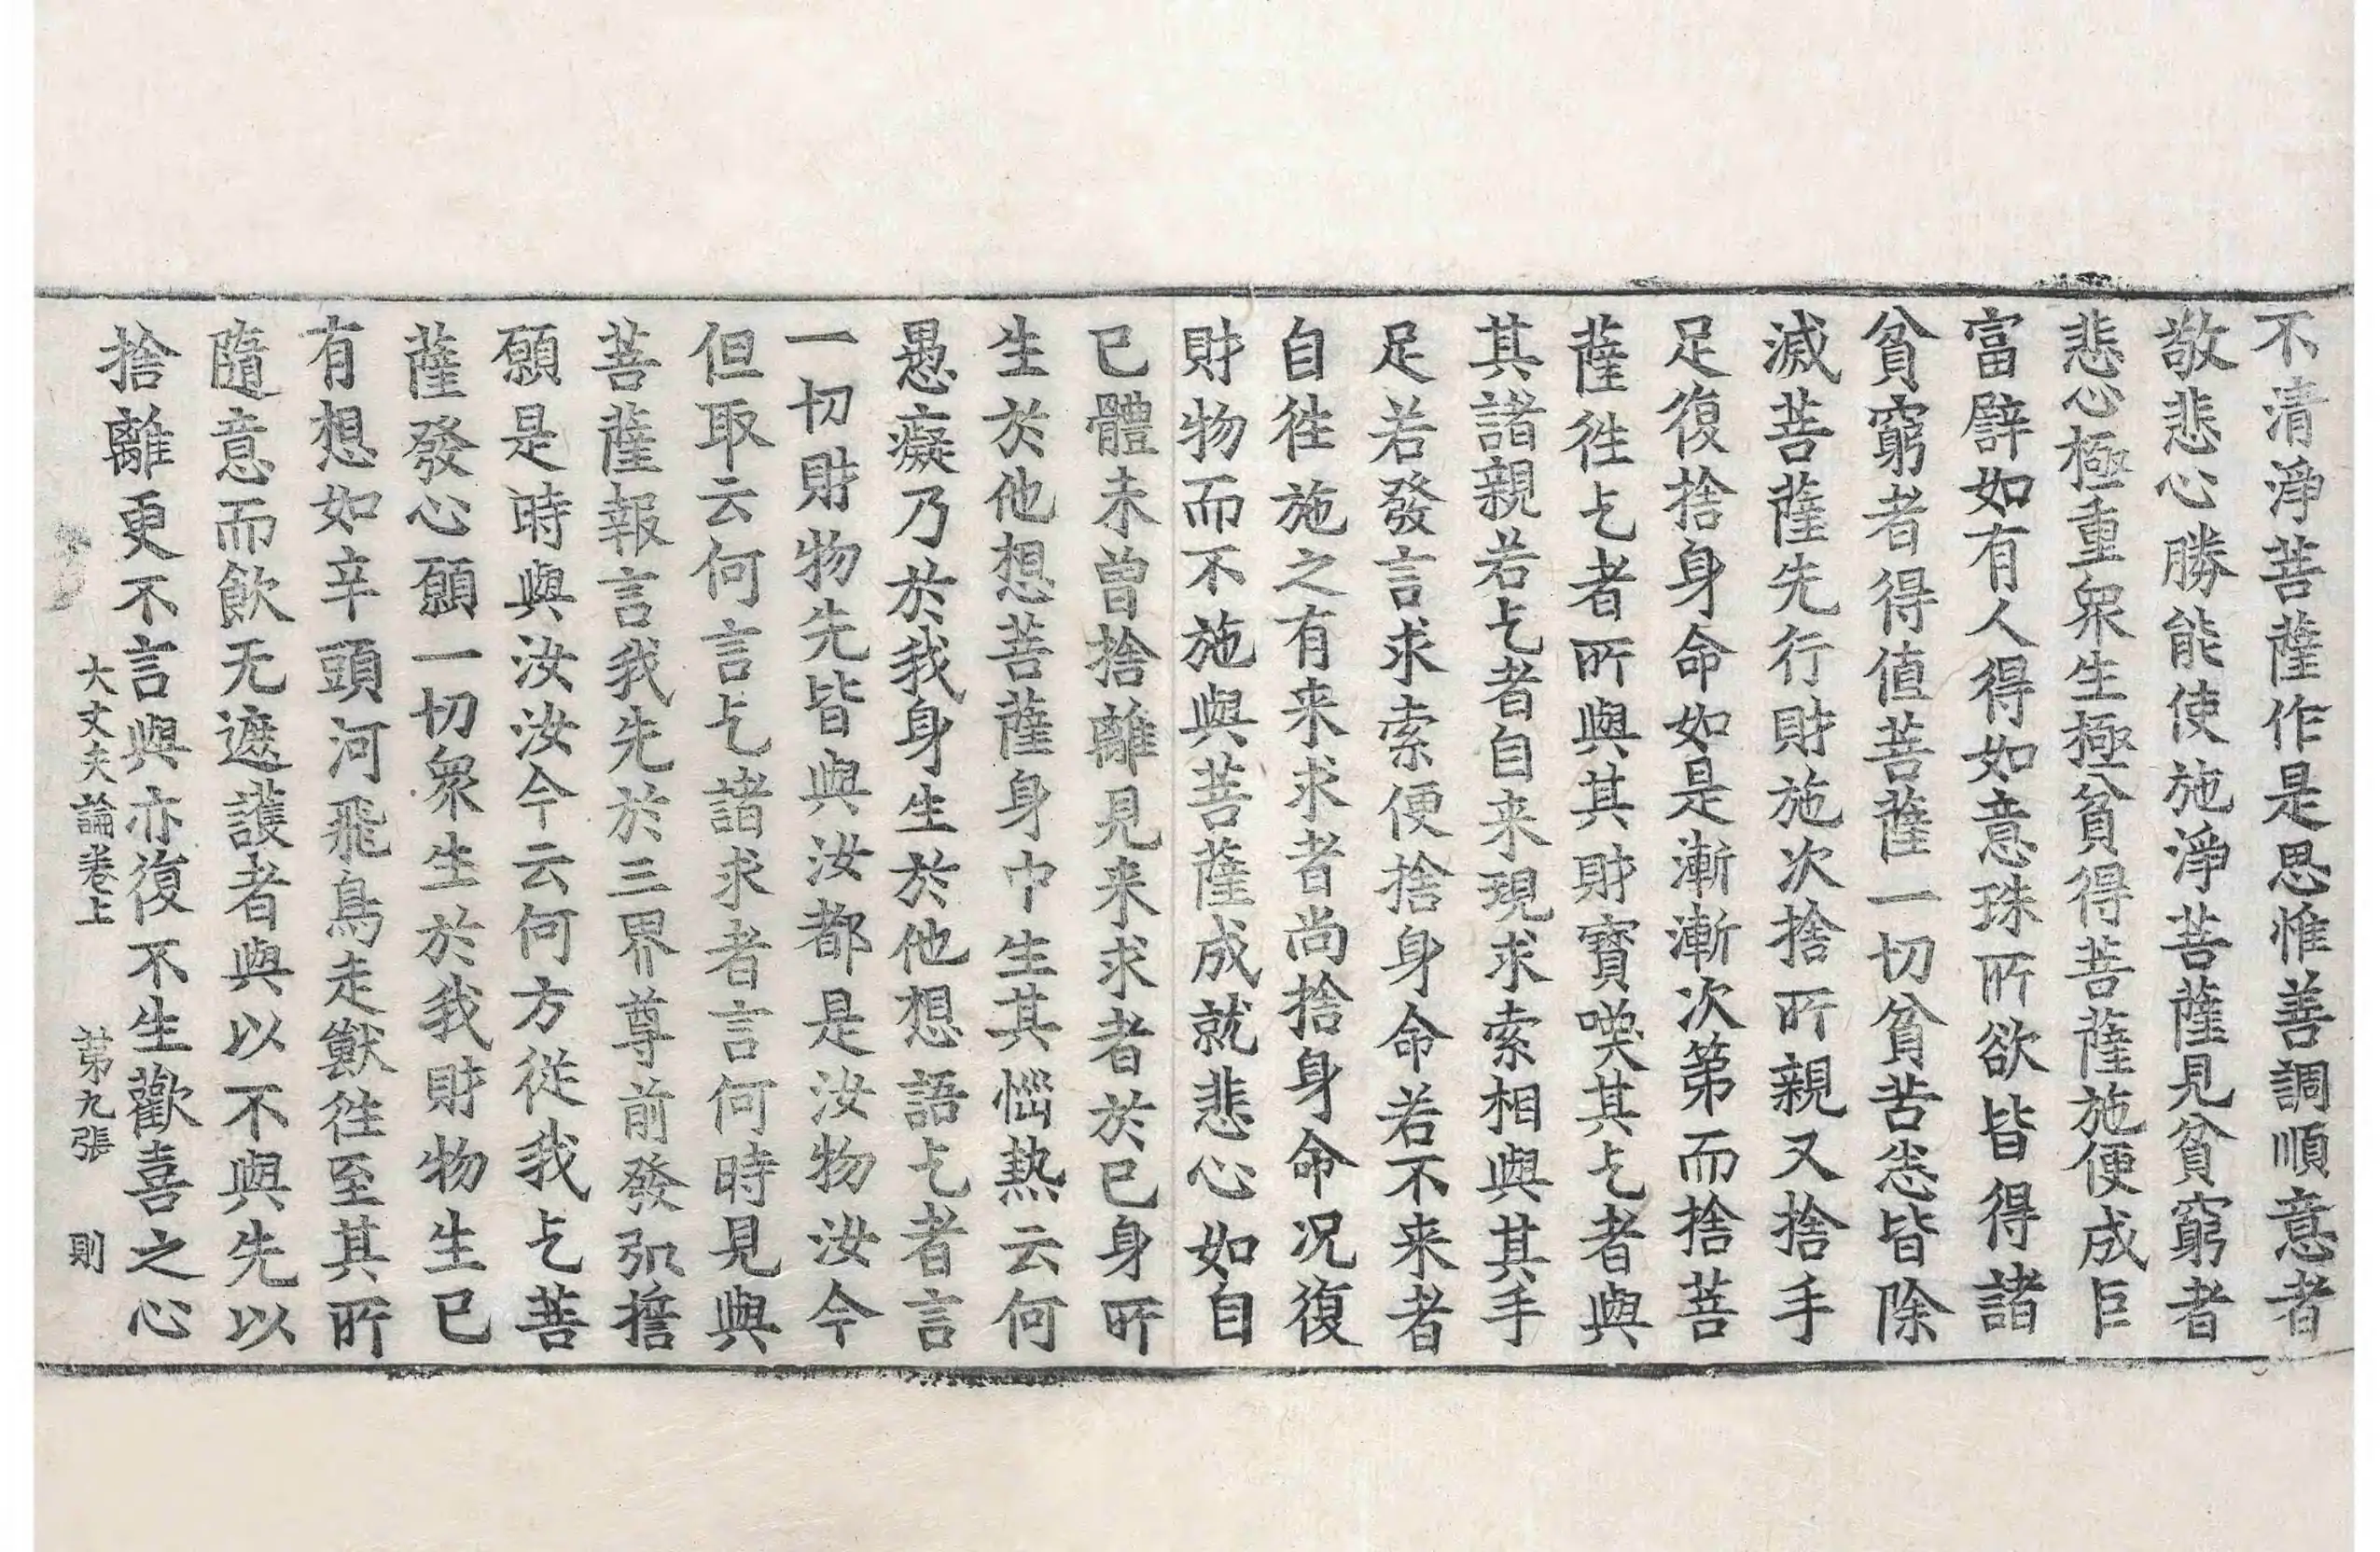 不清淨菩薩作是思惟善調順意者
敬悲心勝能使施淨菩薩見貧窮者
悲心極重衆生極貧得菩薩施便成巨
富譬如有人得如意珠所欲皆得諸
貧窮者得值菩薩一切貧苦悉皆除
滅菩薩先行財施次捨所親又捨手
足復捨身命如是漸漸次第而捨菩
薩徃乞者所與其財寶喚其乞者與
其諸親若乞者自来現求索相與其手
足若發言求索便捨身命若不来者
自徃施之有来求者尚捨身命况復
財物而不施與菩薩成就悲心如自
已體未曾捨離見来求者於已身所
生於他想菩薩身中生其惱熱云何
愚癡乃於我身生於他想語乞者言
一切財物先皆與汝都是汝物汝今
但取云何言乞諸求者言何時見與
菩薩報言我先於三界尊前發弘擔
願是時與汝汝今云何方從我乞菩
薩發心願一切衆生於我財物生已
有想如辛頭河飛鳥走獸徃至其所
隨意而飲无遮護者與以不與先以
捨離更不言與亦復不生歡喜之心
大丈夫論卷上 苐九張 則